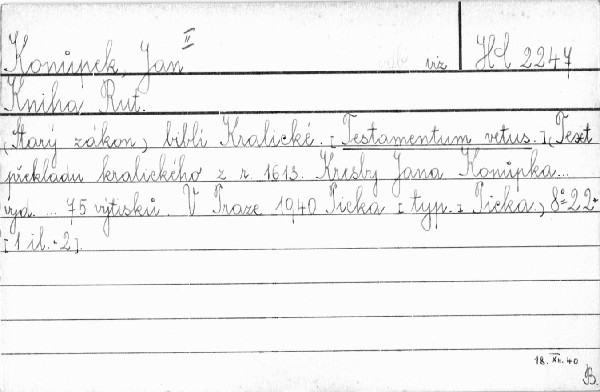 Konůpek, Jan II viz Hd 2247
Kniha Rut.
(Starý zákon) bibli Kralické. [Testamentum vetus.] (Text
překladu kralického z r. 1613. Kresby Jana Konůpka...
vyd. ... 75 výtisků. V Praze 1940 Picka [typ.] Picka.) 8° 22-
[1 il.-2].
18. XII. 40